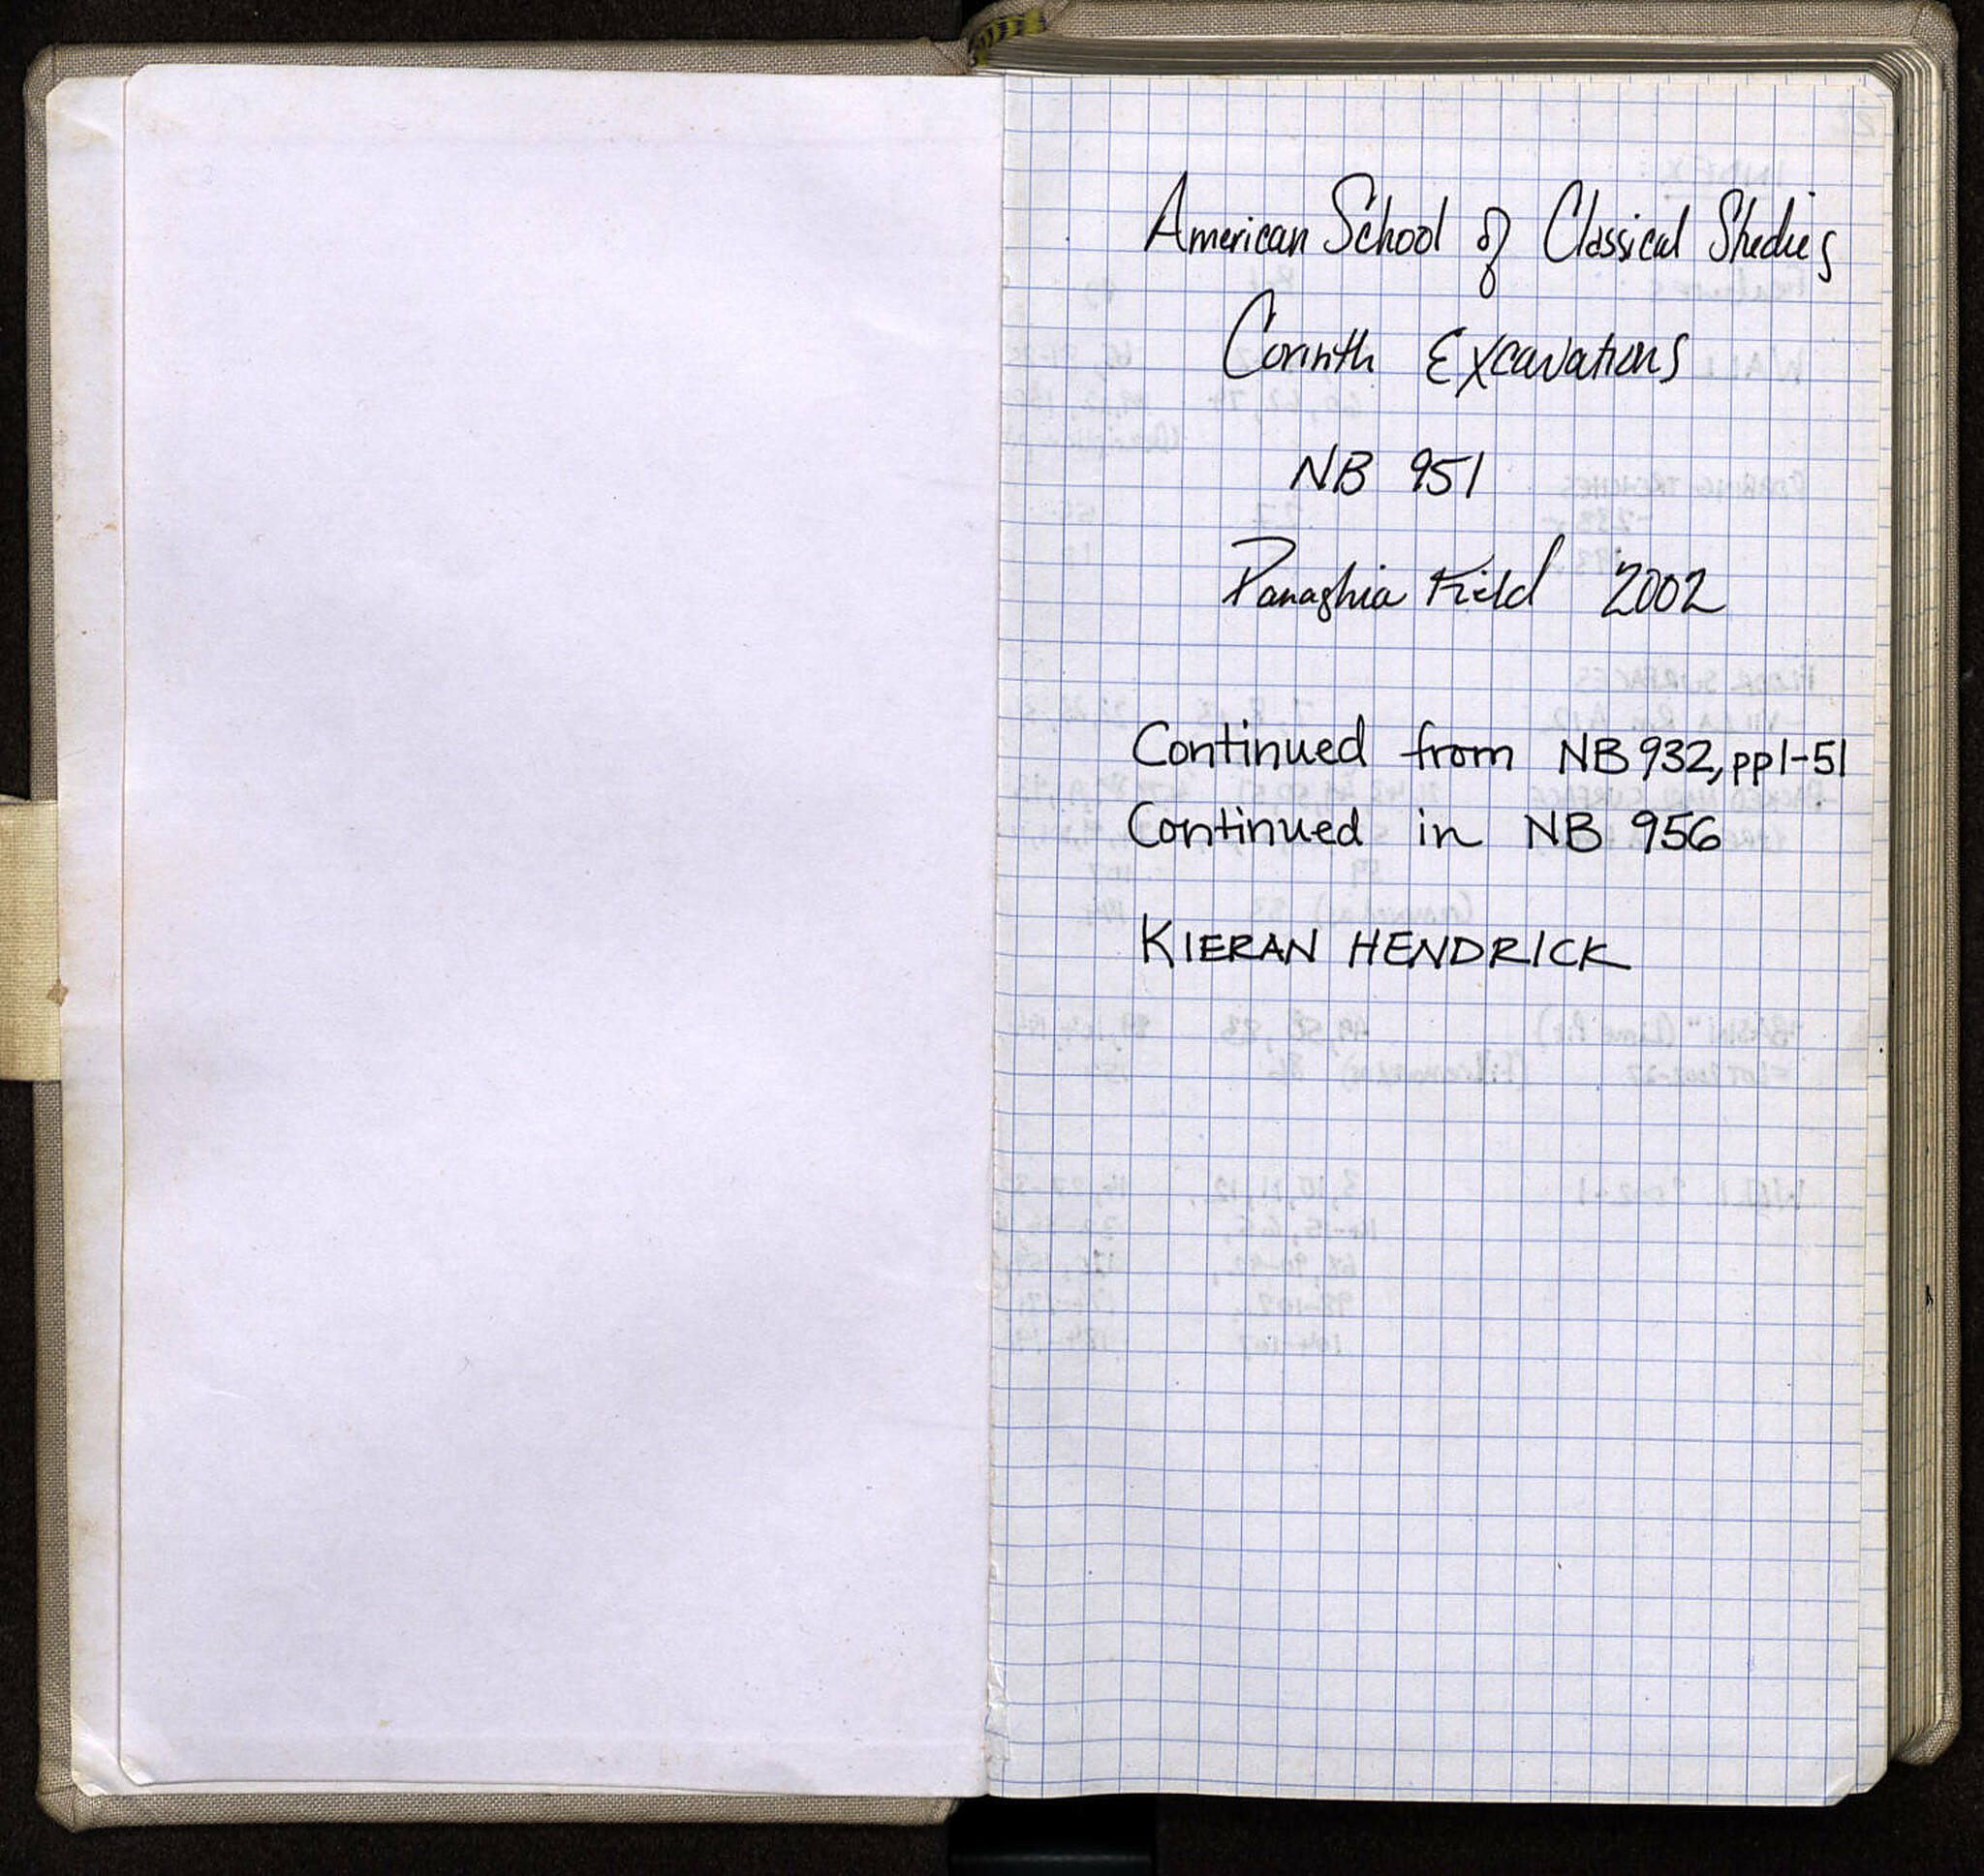 American School of Classical Studies
Corinth Excavations
NB 951
Panaghia Field 2002
Continued from NB 932, pp 1-51
Continued in NB 956
KIERAN HENDRICK